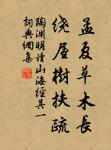 孟夏草木長
繞屋樹扶疏
陶淵明讀山海經其一
詞典網集